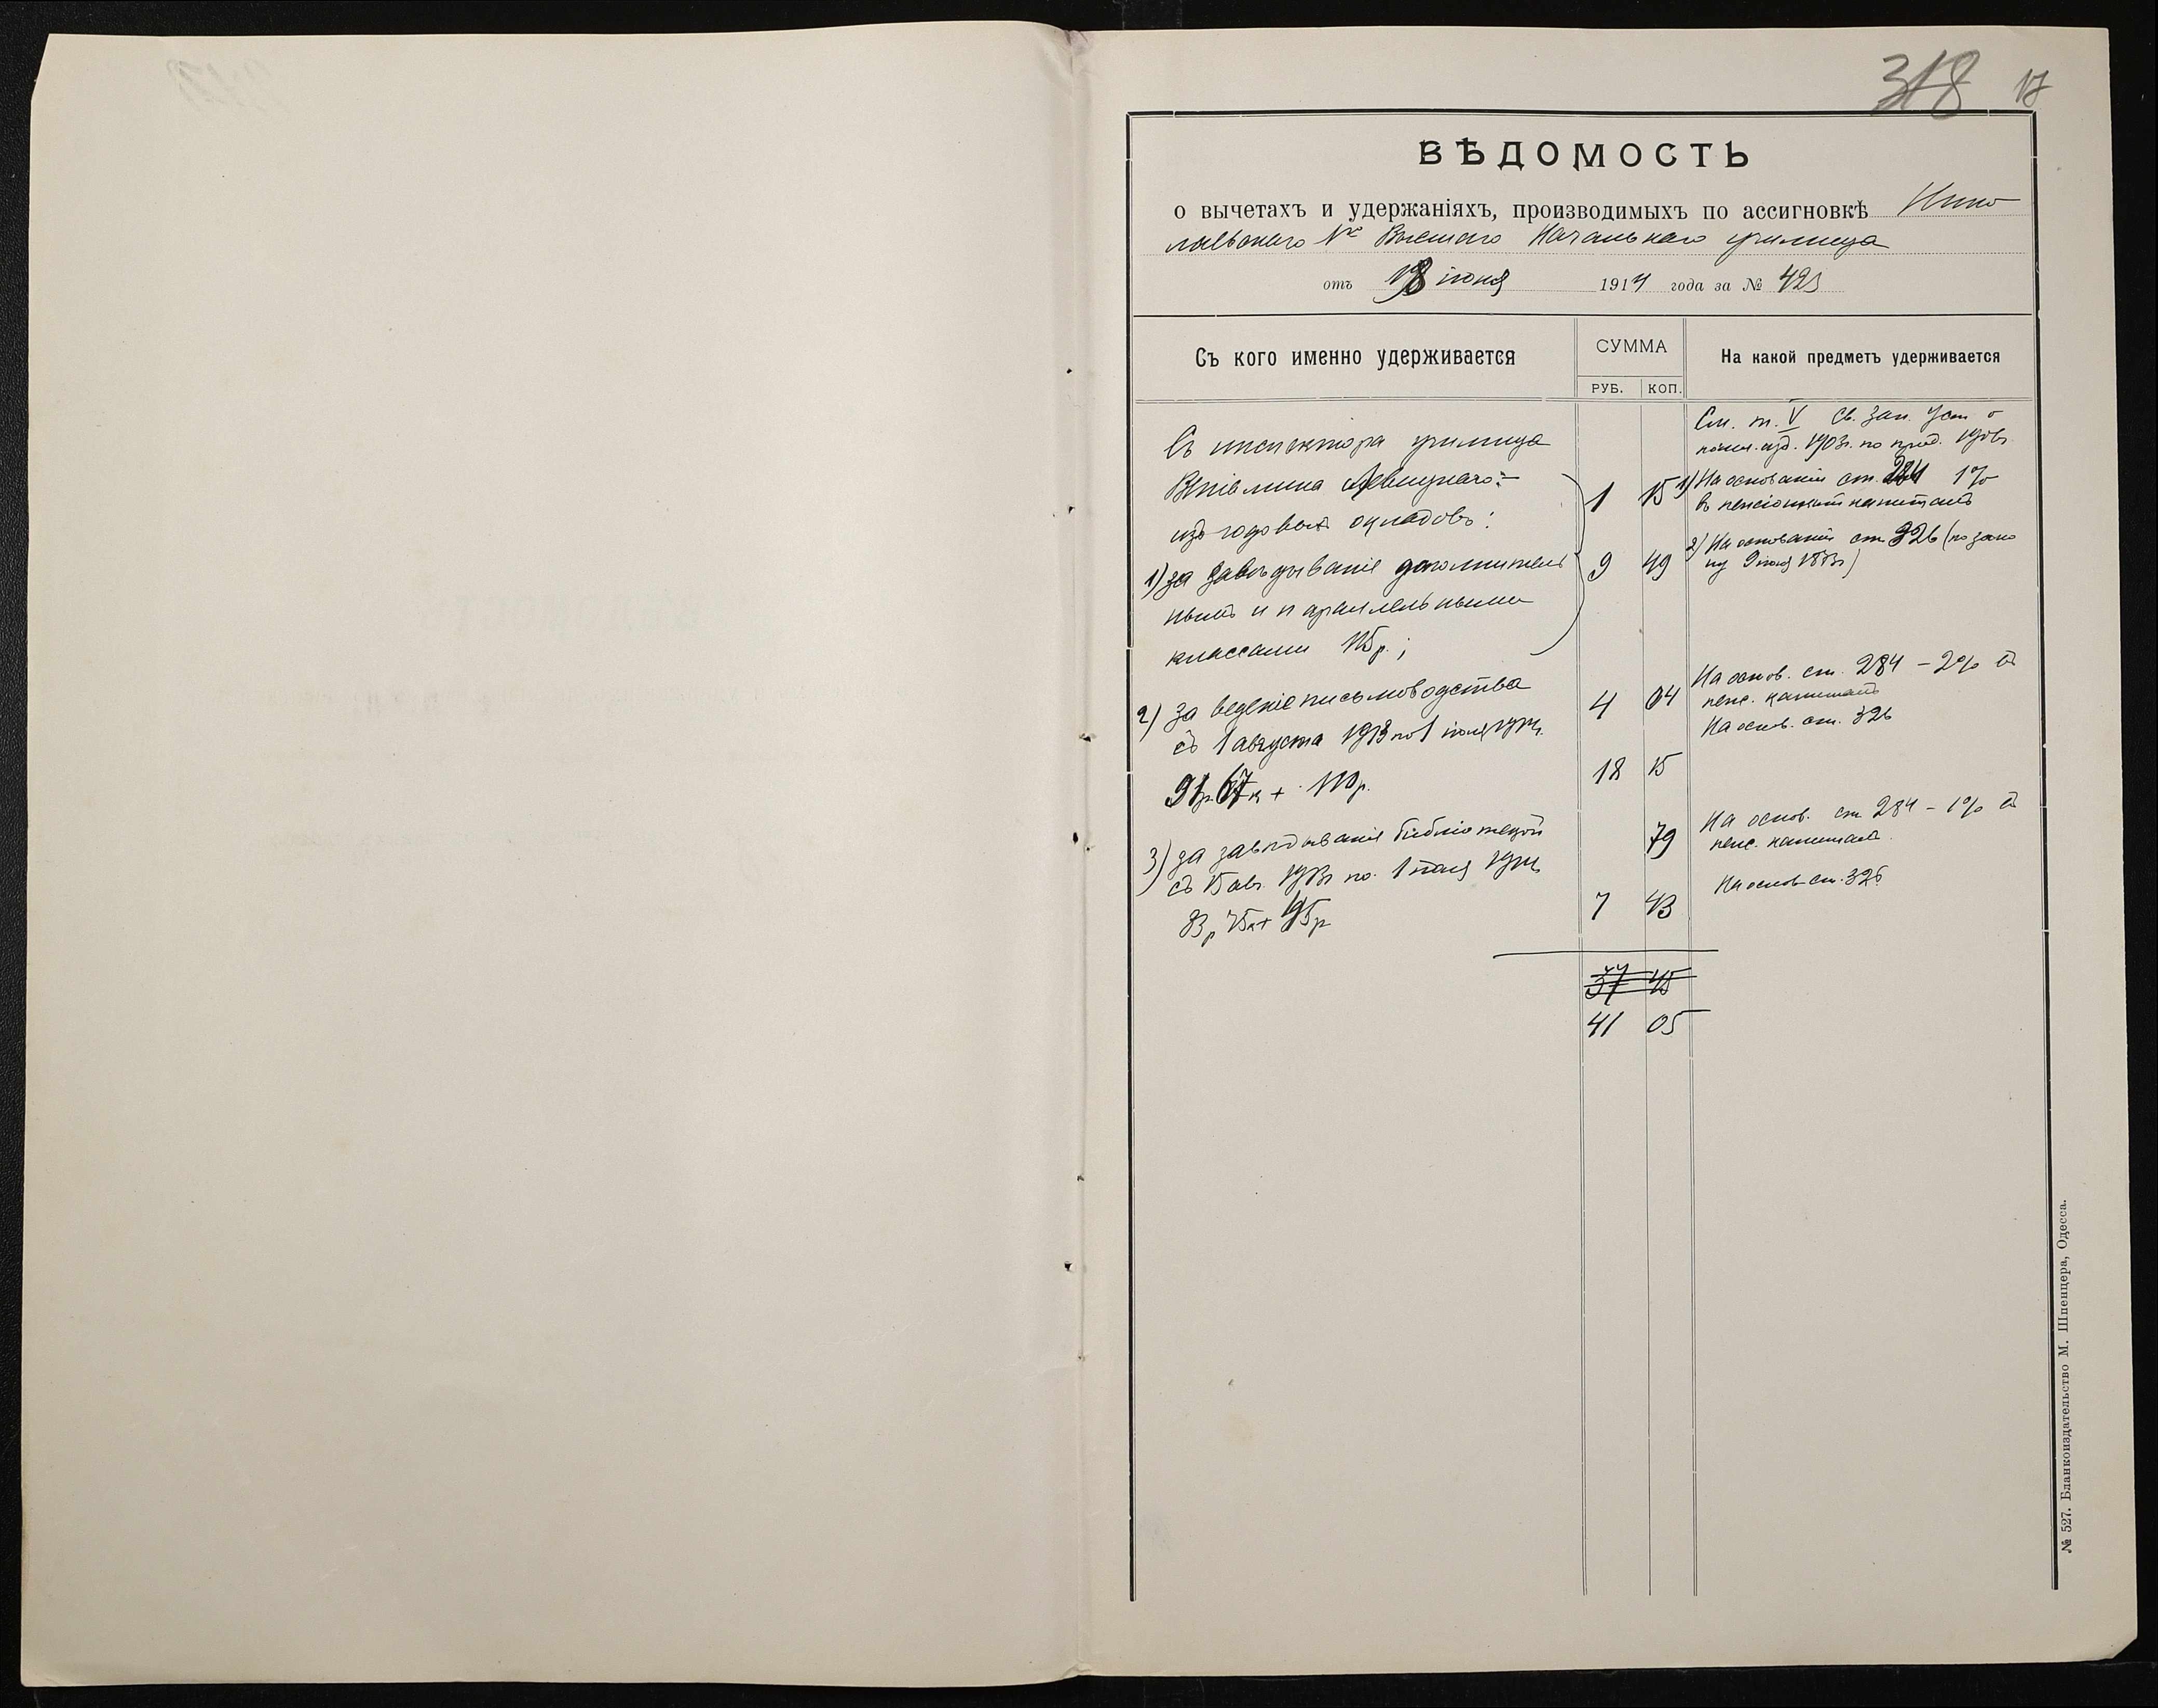 318 17
ВѢДОМОСТЬ
о вычетахъ и удержаніяхъ, производимыхъ по ассигновкѣ Нико
лаевскаго 1го Высшаго Начальнаго училища
отъ 18 іюня 1914 года за № 423
Съ кого именно удерживается
СУММА
РУБ. КОП.
На какой предметъ удерживается
См. т. V Св. Зак. Уст о
пенс. изд. 1903г. по прод. 1906г.
Съ инспектора училища
Веніамина Левицкаго:-
изъ годовыхъ окладовъ:
1 15
1) На основаніи ст. 284 1%
въ пенсіонный капиталъ
1) за завѣдываніе дополнитель
нымъ и параллельными
классами 115р.;
9 49
2) На основаніи ст 326 (по зако
ну 9 іюня 1873г)
2) за веденіе письмоводства
съ 1 августа 1913 по 1 іюля 1914г.
91р. 67к + 110р.
4 04
На основ. ст. 284 - 2% въ
пенс. капиталъ
18 15
На основ. ст. 326
3) за завѣдываніе библіотекой
съ 15 авг. 1913г по 1 іюля 1914г
83р 75к+ 195р
79
На основ. ст 284 - 1% въ
пенс. капиталъ.
7 43
На основ ст. 326
37 45
41 05
№ 527. Бланкоиздательство М. Шпенцера, Одесса.